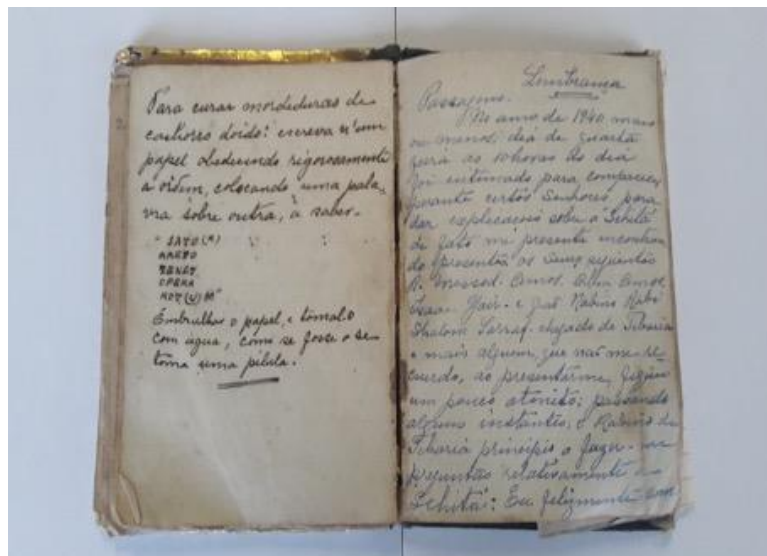 Para curar mordeduras de
cachorro doido: escreva n'um
papel obedecendo rigorosamente
a ordem, colocando uma pala,
vra sôbre outra, a saber.
" SATO(R)
AREPO
TENET
OPERA
ROT(U)
Embrulhar o papel, e tomal-o
com agua, como se fosse o se
toma uma pilula.
Lembrança
Passagens.
No anno de 1940, mais
ou menos, dia de quarta
feira as 10 horas do dia
foi entimado para comparecer
perante certos Senhores, para
dar explicacões sobre a Schitá
de fato me presente encontran
do presentes os Snrs seguintes
R. Messod
Isaac e
Shalom Sarraf chegado de Tiberia
e mais alguem, que não me re
cuerdo, ao presentarme, fiquei
um pouco atonito; passando
alguns instantes, o Rabino de
Tiberia principio a fazer-me
preguntas relativamente a
Schitá: Eu felizmente com